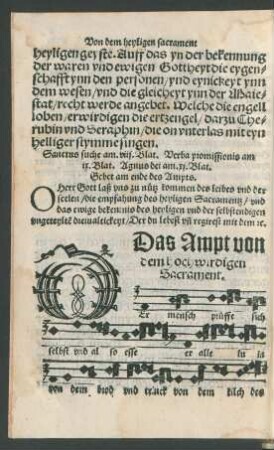 Von dem heyligen sacrament
heyligen geyste. Auff das yn der bekennung
der waren vnd ewigen Gottheyt die eygen-
schafft ynn den personen / vnd eynickeyt ynn
dem wesen / vnd die gleicheyt ynn der Maie-
stat / recht werde angebet. Welche die engell
loben / erwirdigen die ertzengel / dartzu Che-
rubin vnd Seraphin / die on vnterlas mit eyn
helliger stymme singen.
Sanctus suche am. viij. Blat. Verba promissionis am
ix. Blat. Agnus dei am. xj. Blat.
Gebet am ende des Ampts.
O Herr Gott laß vns zu nütz kommen des leibes vnd der
seelen / die empfahung des heyligen Sacraments / vnd
das ewige bekentnis des heyligen vnd der selbstendigen
vngeteylet dreiualtickeyt / Der du lebest vñ regierest mit dem ꝛc.
Das Ampt von
dem hochwirdigen
Sacrament.
Er mensch prüffe sich
selbst vnd al so esse er alle lu ia
von dem brod vnd trinck von dem kilch des